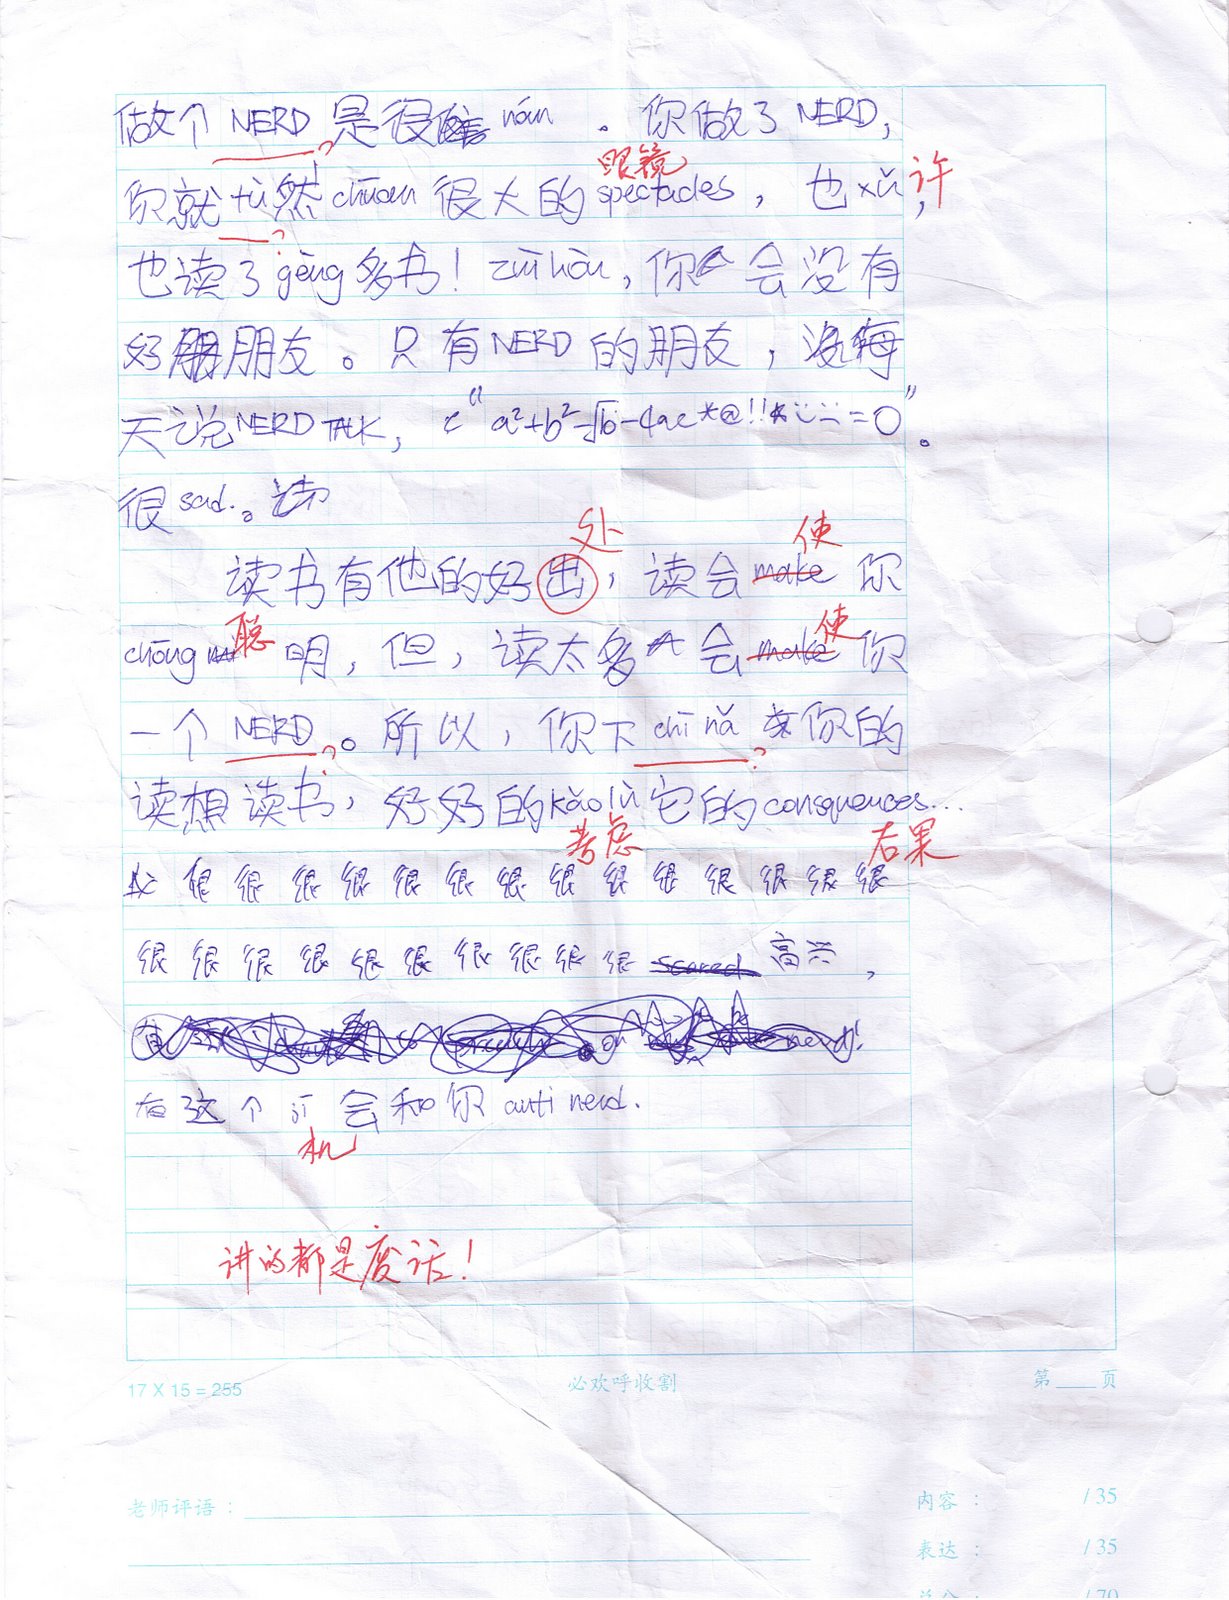 做个 NERD 是很 nán 。你做了 NERD,
眼镜
你就 tù然 chūan 很大的 spectacles , 也 xǔ, 许
也读了 gèng 多书! zuì hòu, 你 会没有
好朋友。只有 NERD 的朋友, 每
天说 NERD TALK, "a²+b²-√b-4ac*@!!* =0"。
很 sad.。
处 使
读书有他的好出, 读会 make 你
聪 使
chōng 明, 但, 读太多 会 make 你
一个 NERD 。所以, 你下 chī nǎ 你的
读想读书, 好好的 kǎo lǜ 它的 consquences...
考虑 后果
很 很 很 很 很 很 很 很 很 很 很 很 很 很
很 很 很 很 很 很 很 很 很 很 scared 高兴,
有这个 jī 会和你 anti nerd.
机
讲的都是废话!
17 X 15 = 255 必欢呼收割 第 页
老师评语 : 内容 : / 35
表达 : / 35
总分 : / 70